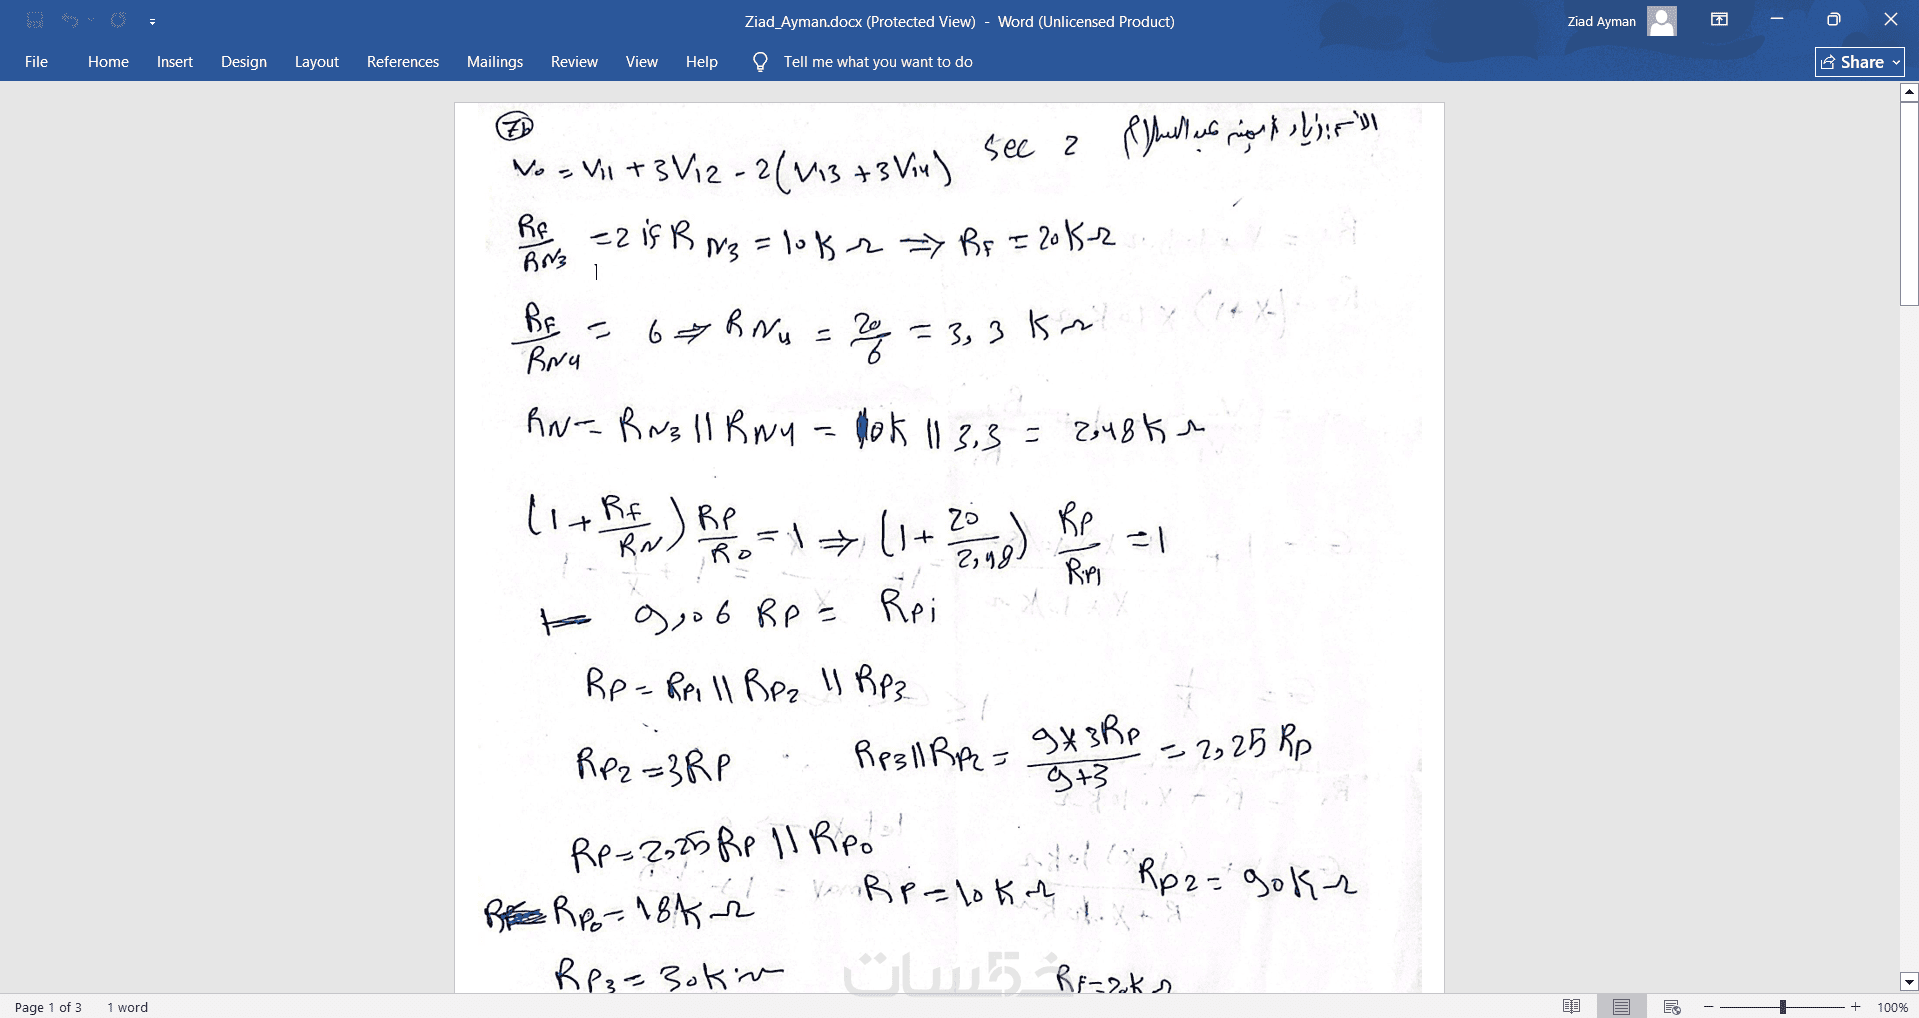 Ziad_Ayman.docx (Protected View) - Word (Unlicensed Product)
Ziad Ayman
File Home Insert Design Layout References Mailings Review View Help Tell me what you want to do
Share
7b
الاسم: زياد ايمن عبد السلام
sec 2
Vo = Vi1 + 3Vi2 - 2(Vi3 + 3Vi4)
RF/RN3 = 2 if RN3 = 10KΩ ⇒ RF = 20KΩ
RF/RN4 = 6 ⇒ RN4 = 20/6 = 3,3 KΩ
RN = RN3 || RN4 = 10K || 3,3 = 2,48KΩ
(1 + RF/RN) RP/RO = 1 ⇒ (1 + 20/2,48) RP/RP1 = 1
9,06 RP = RPi
RP = RP1 || RP2 || RP3
RP2 = 3RP RP3 || RP2 = 9*3RP/9+3 = 2,25 RP
RP = 2,25RP || RPo
RP = 10KΩ RP2 = 90KΩ
RPo = 18KΩ
RP3 = 30KΩ RF = 20KΩ
خ5سات
Page 1 of 3 1 word
100%